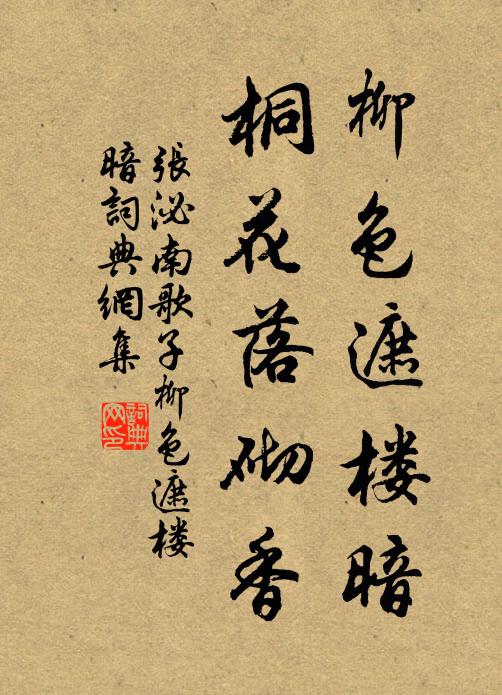 柳色遮楼暗
桐花落砌香
張泌南歌子柳色遮楼
暗詞典網集
詞典
网印